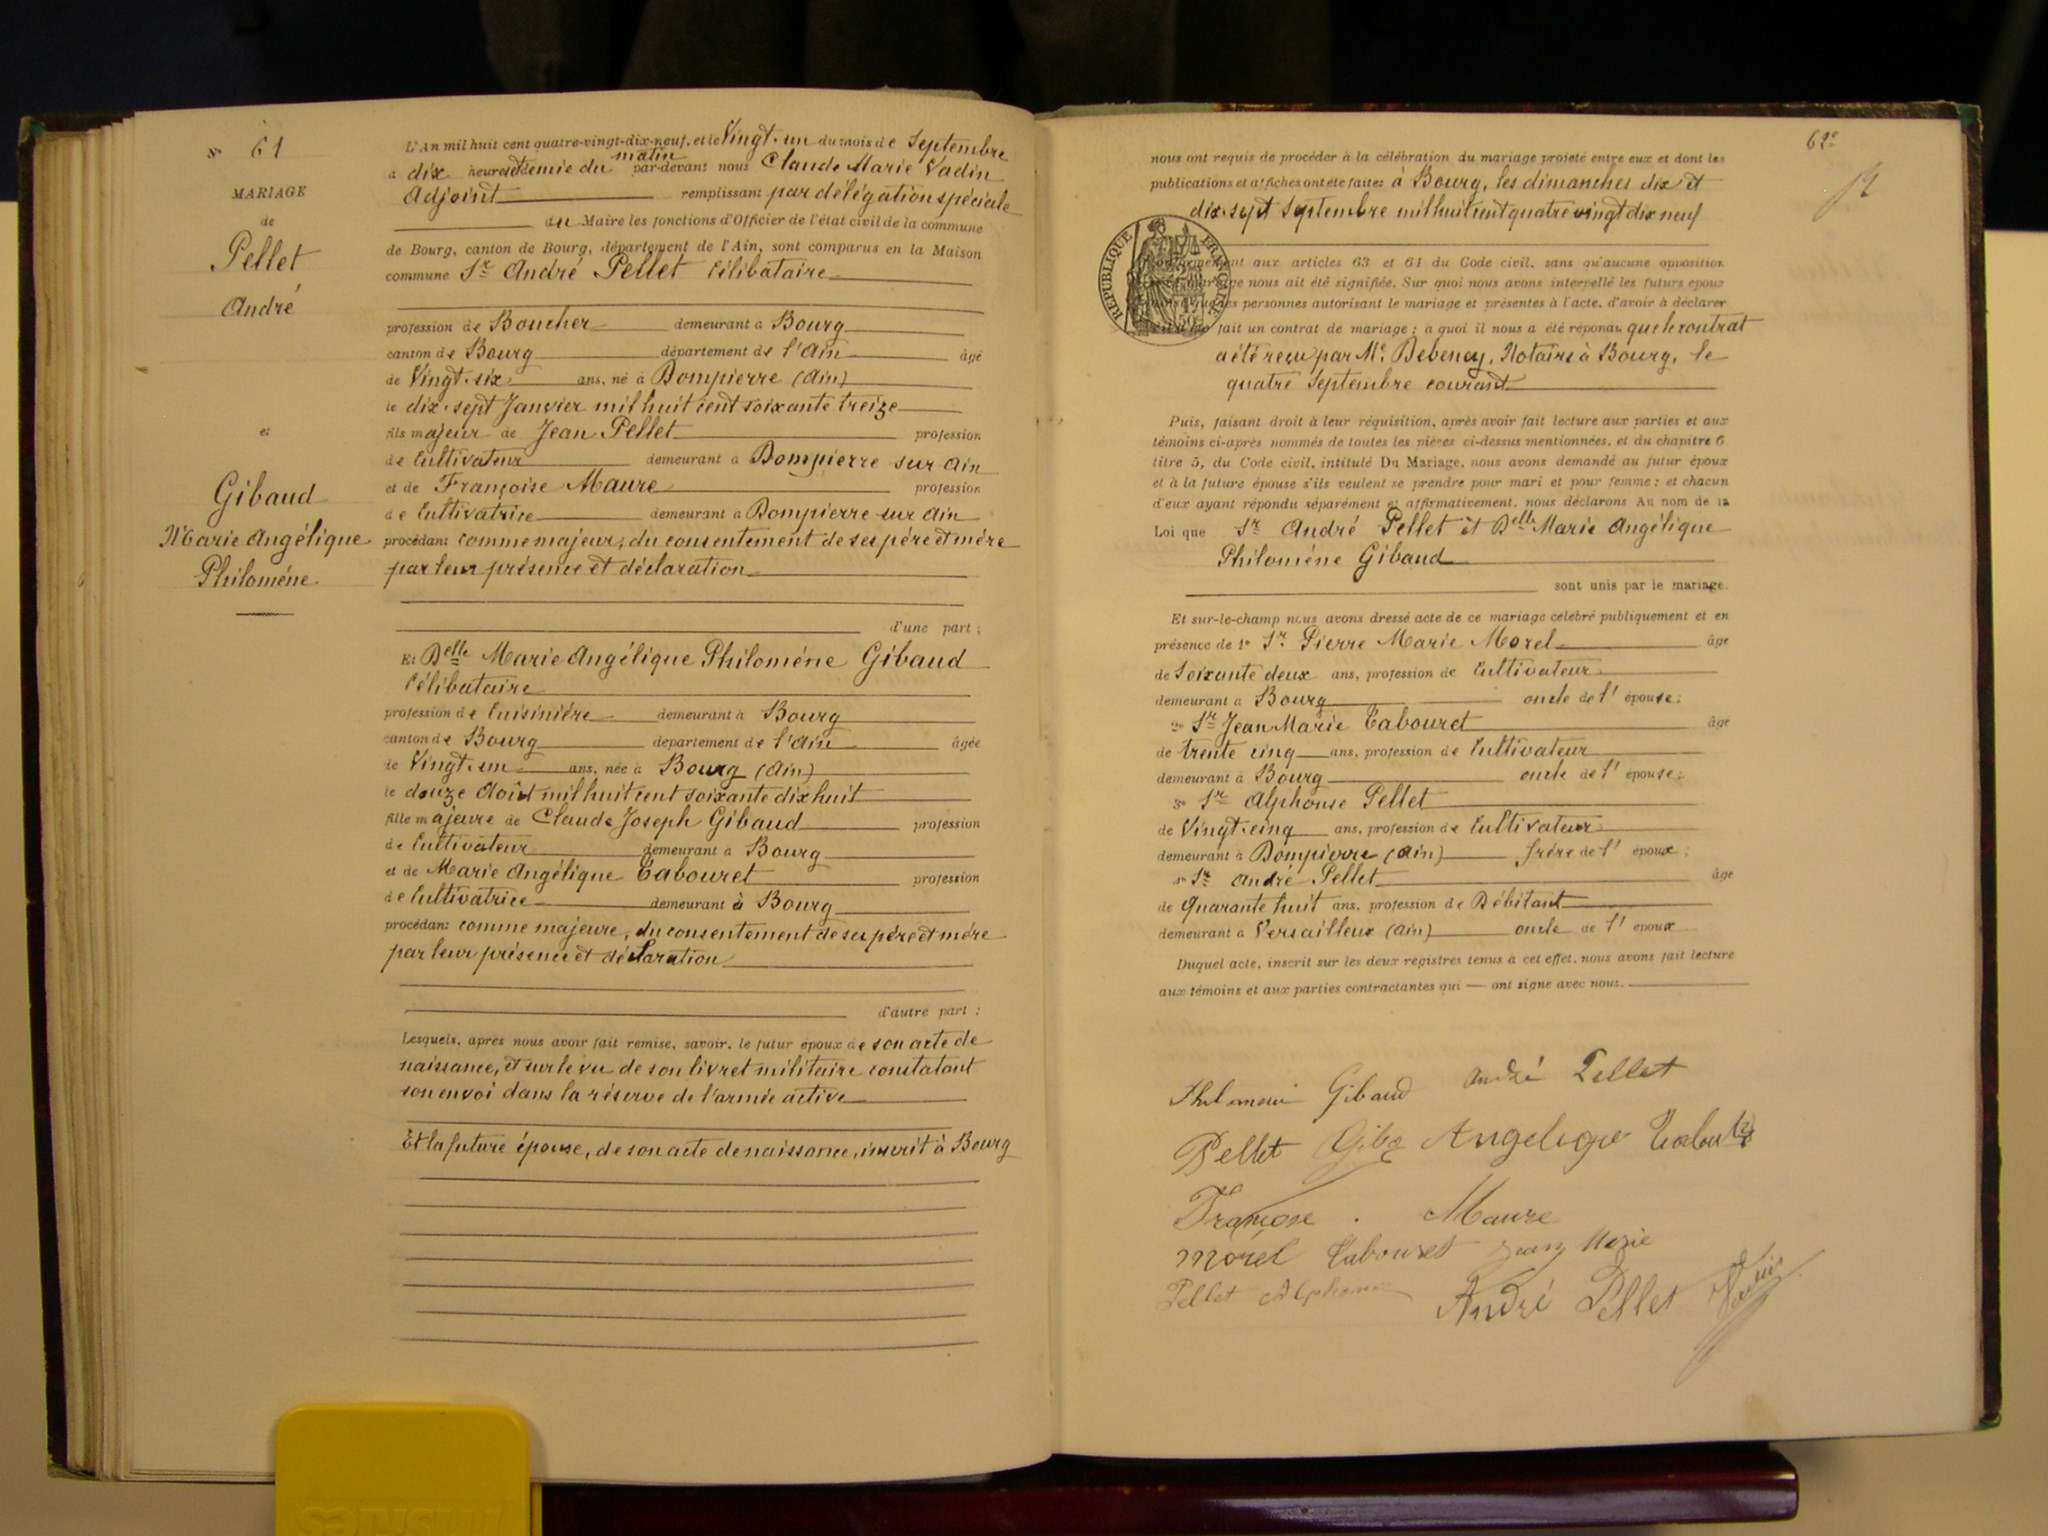 N° 61
MARIAGE
de
Pellet
André
et
Gibaud
Marie Angélique
Philoméne
L'An mil huit cent quatre-vingt-dix-neuf, et le Vingt-un du mois de Septembre
à dix heures et demie du matin par-devant nous Claude Marie Vadin
Adjoint remplissant par délégation spéciale
du Maire les fonctions d'Officier de l'état civil de la commune
de Bourg, canton de Bourg, département de l'Ain, sont comparus en la Maison
commune Sr André Pellet Célibataire
profession de Boucher demeurant à Bourg
canton de Bourg département de l'Ain âgé
de Vingt-six ans, né à Dompierre (Ain)
le dix-sept Janvier mil huit cent soixante treize
fils majeur de Jean Pellet profession
de Cultivateur demeurant à Dompierre sur Ain
et de Françoise Maure profession
de Cultivatrice demeurant à Dompierre sur Ain
procédant comme majeur, du consentement de ses père et mère
par leur présence et déclaration
d'une part ;
Et Delle Marie Angélique Philoméne Gibaud
Célibataire
profession de Cuisinière demeurant à Bourg
canton de Bourg département de l'Ain âgée
de Vingt-un ans, née à Bourg (Ain)
le douze Août mil huit cent soixante dix huit
fille majeure de Claude Joseph Gibaud profession
de Cultivateur demeurant à Bourg
et de Marie Angélique Tabouret profession
de Cultivatrice demeurant à Bourg
procédant comme majeure, du consentement de ses père et mère
par leur présence et déclaration
d'autre part ;
Lesquels, après nous avoir fait remise, savoir, le futur époux de son acte de
naissance, et sur le vu de son livret militaire constatant
son envoi dans la réserve de l'armée active
Et la future épouse, de son acte de naissance, inscrit à Bourg
62e
nous ont requis de procéder à la célébration du mariage projeté entre eux et dont les
publications et affiches ont été faites à Bourg, les dimanches dix et
dix-sept Septembre mil huit cent quatre vingt dix neuf
REPUBLIQUE FRANÇAISE
conformément aux articles 63 et 64 du Code civil, sans qu'aucune opposition
mariage nous ait été signifiée. Sur quoi nous avons interpellé les futurs époux
que les personnes autorisant le mariage et présentes à l'acte, d'avoir à déclarer
fait un contrat de mariage ; à quoi il nous a été répondu que le contrat
a été reçu par Me Debeney, Notaire à Bourg, le
quatre Septembre courant
Puis, faisant droit à leur réquisition, après avoir fait lecture aux parties et aux
témoins ci-après nommés de toutes les pièces ci-dessus mentionnées, et du chapitre 6
titre 5, du Code civil, intitulé Du Mariage, nous avons demandé au futur époux
et à la future épouse s'ils veulent se prendre pour mari et pour femme ; et chacun
d'eux ayant répondu séparément et affirmativement, nous déclarons Au nom de la
Loi que Sr André Pellet et Delle Marie Angélique
Philoméne Gibaud
sont unis par le mariage.
Et sur-le-champ nous avons dressé acte de ce mariage célébré publiquement et en
présence de 1° Sr Pierre Marie Morel âgé
de Soixante deux ans, profession de Cultivateur
demeurant à Bourg oncle de l'épouse ;
2° Sr Jean Marie Tabouret âgé
de trente cinq ans, profession de Cultivateur
demeurant à Bourg oncle de l'épouse ;
3° Sr Alphonse Pellet
de Vingt-cinq ans, profession de Cultivateur
demeurant à Dompierre (Ain) frère de l'époux ;
Sr André Pellet âgé
de Quarante huit ans, profession de Débitant
demeurant à Versailleux (Ain) oncle de l'époux
Duquel acte, inscrit sur les deux registres tenus à cet effet, nous avons fait lecture
aux témoins et aux parties contractantes qui — ont signé avec nous.
Gibaud André Pellet
Pellet Angelique
Maure
Morel Tabouret Jean Marie
Pellet Alphonse André Pellet Vadin